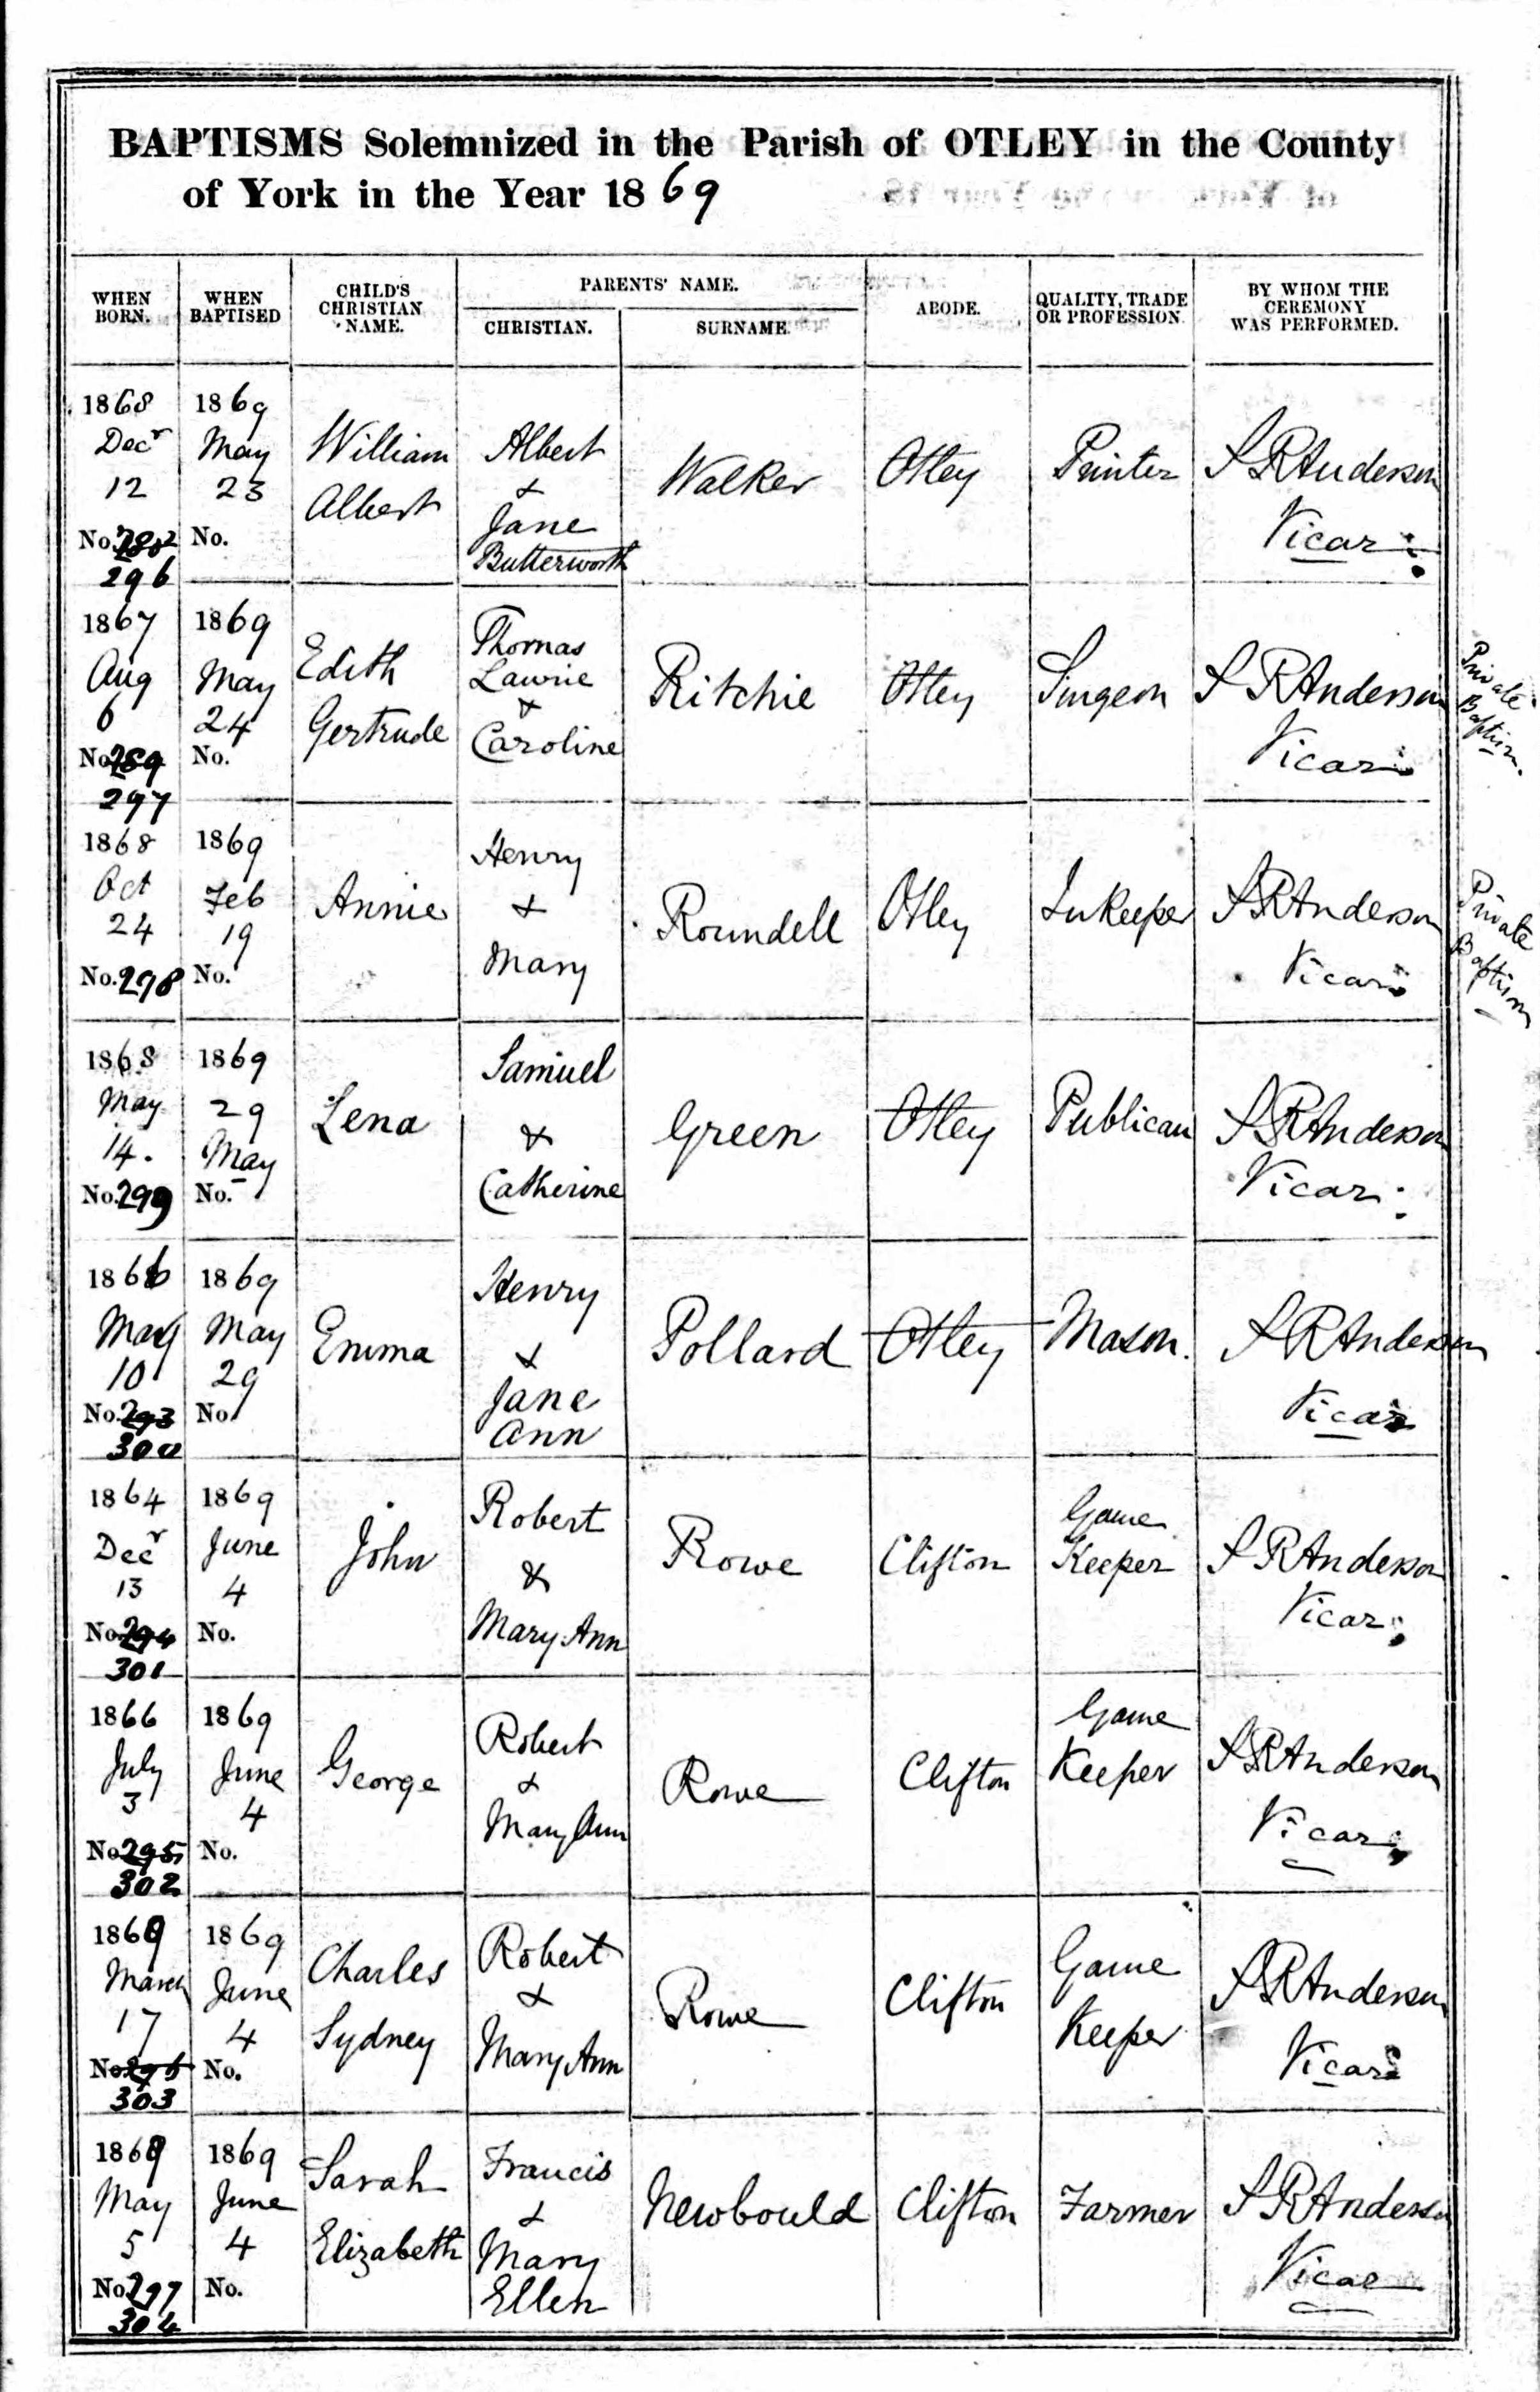 BAPTISMS Solemnized in the Parish of OTLEY in the County
of York in the Year 1869
WHEN BORN.
WHEN BAPTISED
CHILD'S CHRISTIAN NAME.
PARENTS' NAME.
CHRISTIAN.
SURNAME.
ABODE.
QUALITY, TRADE OR PROFESSION
BY WHOM THE CEREMONY WAS PERFORMED.
1868 Decr 12 No. 296
1869 May 23 No.
William Albert
Albert & Jane Butterworth
Walker
Otley
Printer
S R Anderson Vicar
1867 Aug 6 No. 289 297
1869 May 24 No.
Edith Gertrude
Thomas Lawrie & Caroline
Ritchie
Otley
Surgeon
S R Anderson Vicar
Private Baptism.
1868 Oct 24 No. 298
1869 Feb 19 No.
Annie
Henry & Mary
Roundell
Otley
Inkeeper
S R Anderson Vicar
Private Baptism
1868 May 14. No. 299
1869 29 May No.
Lena
Samuel & Catherine
Green
Otley
Publican
S R Anderson Vicar
1866 May 10 No. 293 300
1869 May 29 No
Emma
Henry & Jane Ann
Pollard
Otley
Mason.
S R Anderson Vicar
1864 Decr 13 No. 294 301
1869 June 4 No.
John
Robert & Mary Ann
Rowe
Clifton
Game Keeper
S R Anderson Vicar
1866 July 3 No 295 302
1869 June 4 No.
George
Robert & Mary Ann
Rowe
Clifton
Game Keeper
S R Anderson Vicar
1869 March 17 No. 296 303
1869 June 4 No.
Charles Sydney
Robert & Mary Ann
Rowe
Clifton
Game Keeper
S R Anderson Vicar
1869 May 5 No 297 304
1869 June 4 No.
Sarah Elizabeth
Francis & Mary Ellen
Newbould
Clifton
Farmer
S R Anderson Vicar